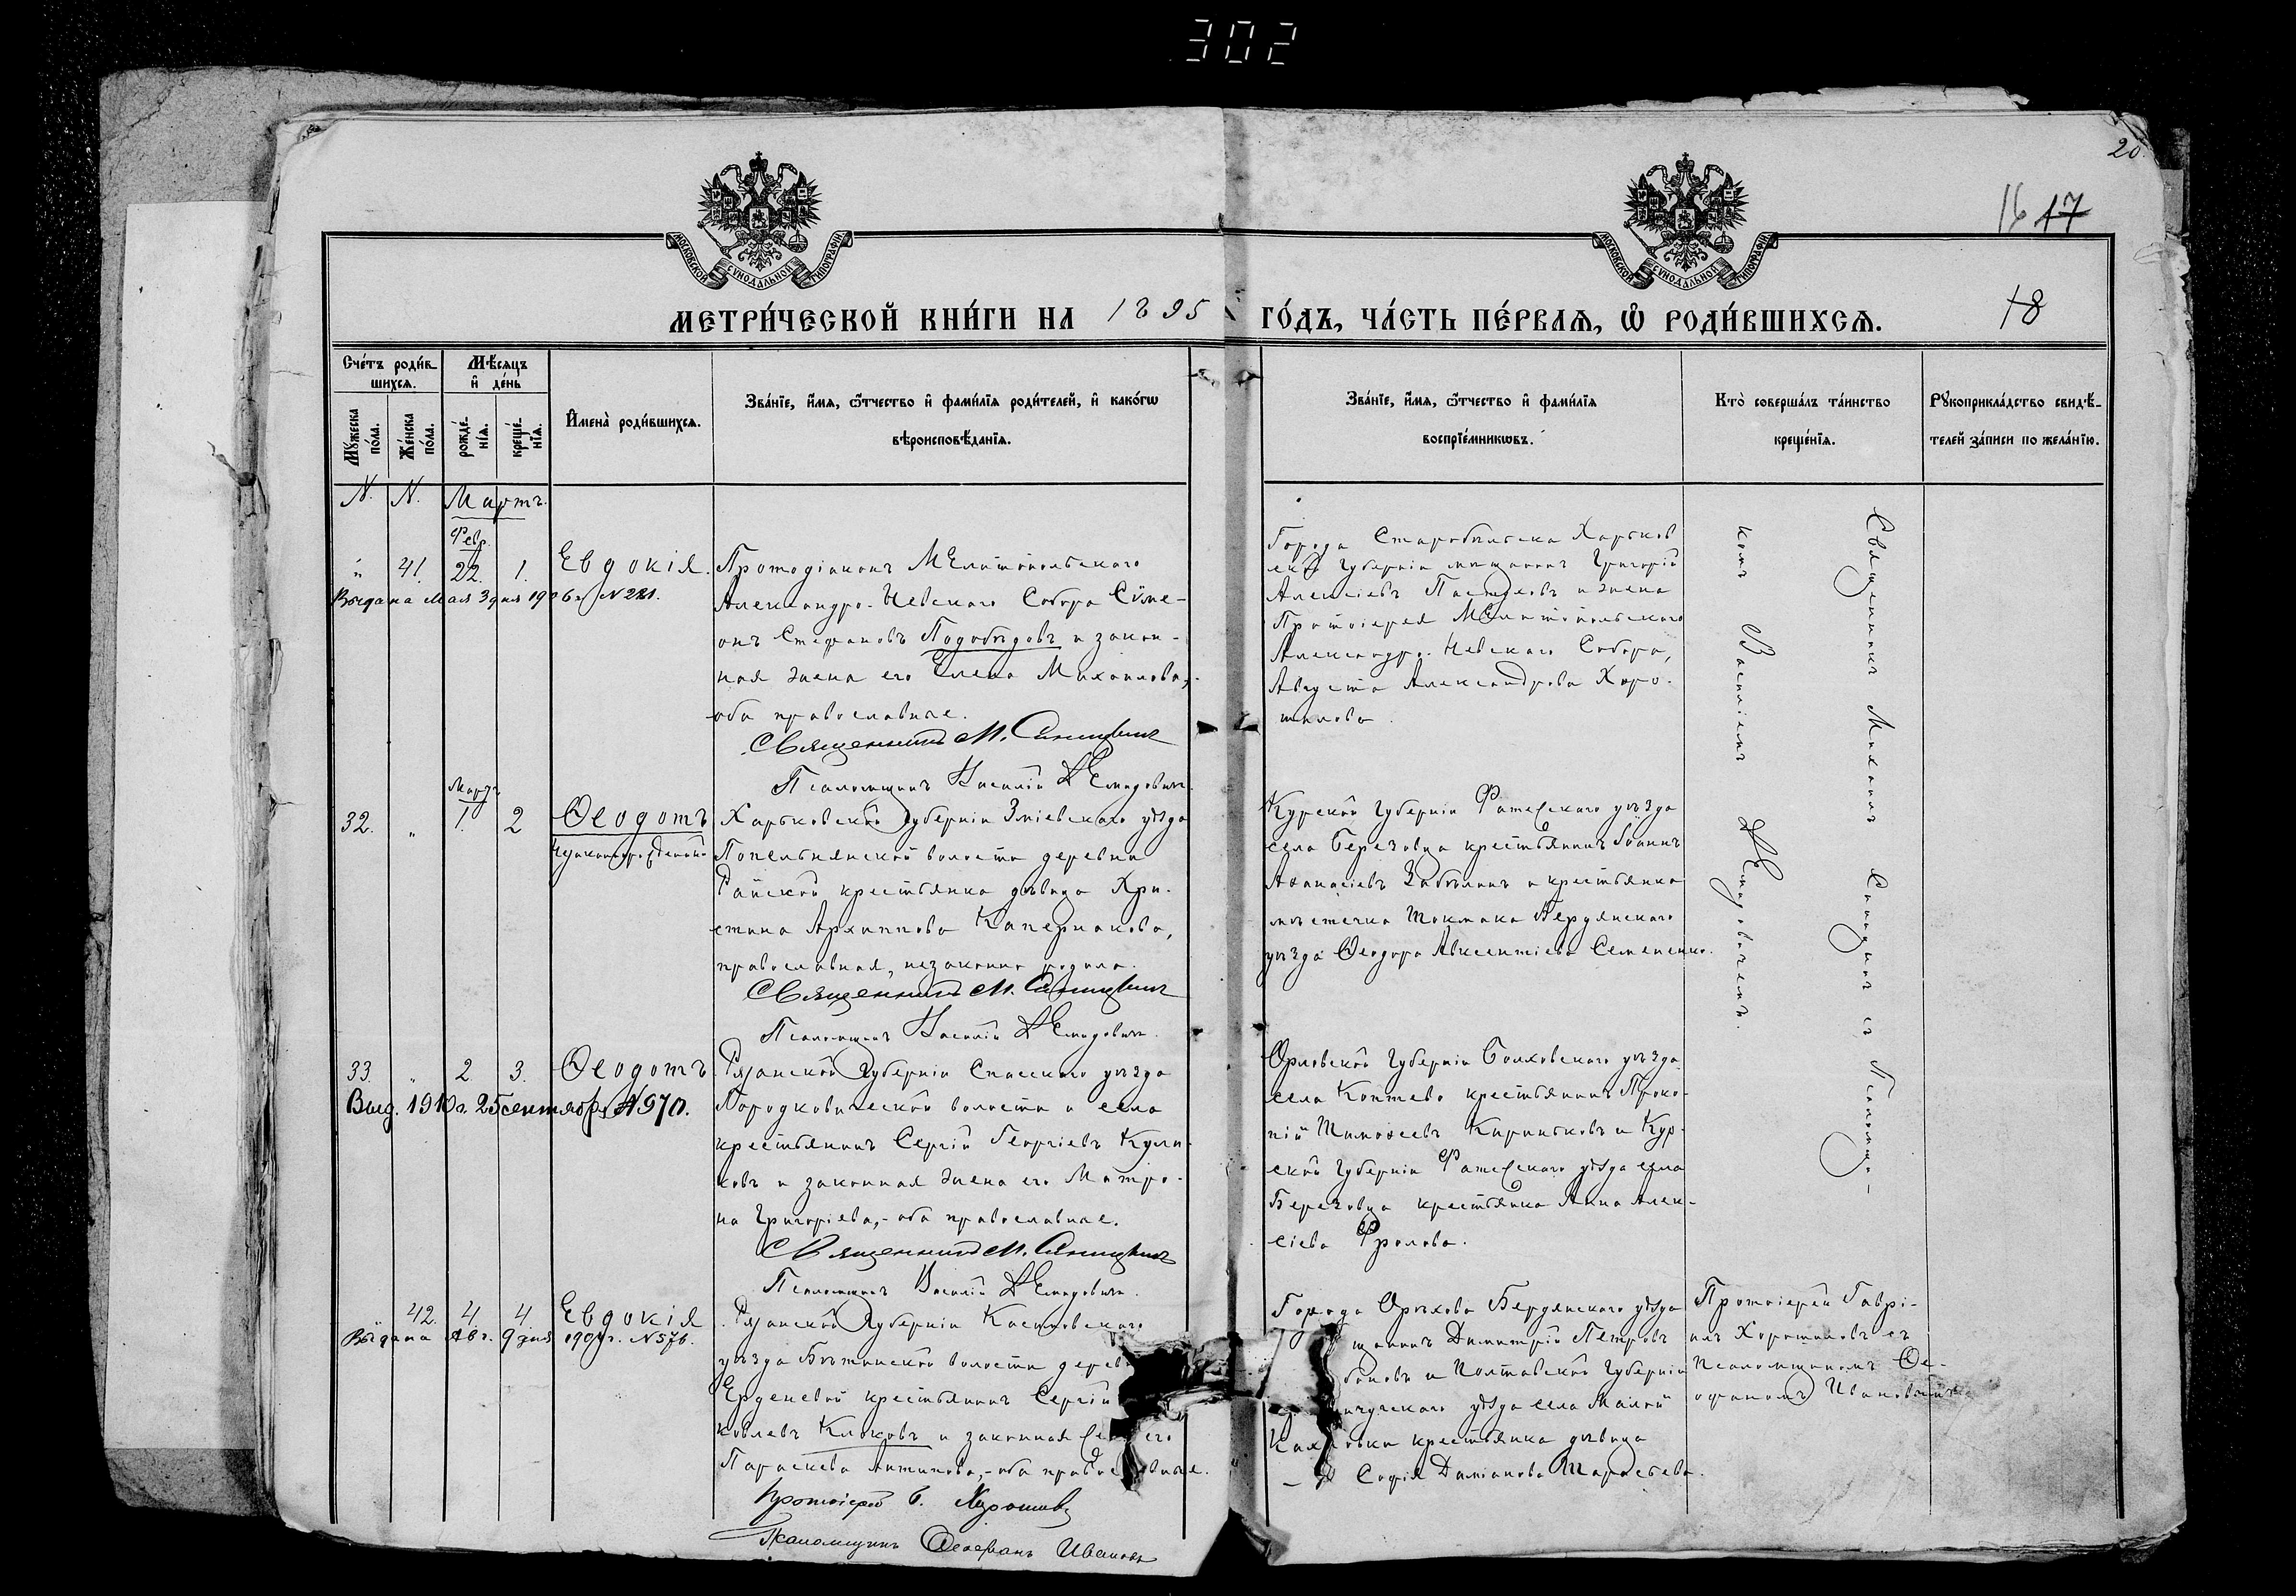 302
20.
16 17
МОСКОВСКОЙ СѴНОДАЛЬНОЙ ТИПОГРАФІИ
МОСКОВСКОЙ СѴНОДАЛЬНОЙ ТИПОГРАФІИ
МЕТРИ́ЧЕСКОЙ КНИ́ГИ НА 1895 ГО́ДЪ, ЧА́СТЬ ПЕ́РВАЯ, Ѡ҆ РОДИ́ВШИХСЯ.
18
Сче́тъ роди́в
шихся.
Мѣ́сяцъ
и҆ де́нь
Мꙋ́жеска
по́ла.
Же́нска
по́ла.
рожде́-
нїя.
креще́-
нїя.
И҆мена̀ роди́вшихся.
Зва́нїе, и҆́мя, ѻ҆́тчество и҆ фами́лїя роди́телей, и҆ како́гѡ
вѣроисповѣ́данїя.
Зва́нїе, и҆́мя, ѻ҆́тчество и҆ фами́лїя
воспрїе́мникѡвъ.
Кто̀ соверша́лъ та́инство
креще́нїя.
Рꙋкоприкла́дство свидѣ́-
телей за́писи по жела́нїю.
N. N. Мартъ.
Февр.
" 41. 22. 1. Евдокія.
Выдана Мая 3 дня 1906 г. N 221.
Протодіаконъ Мелитопольскаго
Александро-Невскаго Собора Сѵме-
онъ Стефановъ Подобѣдовъ и закон-
ная жена его Елена Михаилова,-
оба православные.
Священникъ М. Синицкій
Псаломщикъ Василій Демидовичъ.
Города Старобѣльска Харьков
ской Губерніи мѣщанинъ Григорій
Алексіевъ и жена
Протоіерея Мелитопольскаго
Александро-Невскаго Собора,
Августа Александрова Хоро-
шилова.
Священникъ Михаилъ Синицкій съ Псаломщи-
комъ Василіемъ Демидовичемъ.
Мартъ
32. " 1. 2 Ѳеодотъ
незаконнорожденный
Харьковской Губерніи Зміевского уѣзда
Попельнянской волости деревни
Райской крестьянка дѣвица Хри-
стина Архиппова Капернакова,
православная, незаконно родила.
Священникъ М. Синицкій
Псаломщикъ Василій Демидовичъ.
Курской Губерніи Фатежскаго уѣзда
села Березовца крестьянинъ Іоаннъ
Аѳанасіевъ Забѣлинъ и крестьянка
мѣстечка Токмака Бердянскаго
уѣзда Ѳеодора Авксентіева Семененко.
33. " 2. 3. Ѳеодотъ
Выд. 1910 г. 25 сентября №970.
Рязанской Губерніи Спасскаго уѣзда
Городковической волости и села
крестьянинъ Сергій Георгіевъ Кули-
ковъ и законная жена его Матро-
на Григоріева,- оба православные.
Священникъ М. Синицкій
Псаломщикъ Василій Демидовичъ.
Орловской Губерніи Болховскаго уѣзда
села Коптево крестьянинъ Проко-
пій Тимоѳеевъ Кирпиковъ и Кур-
ской Губерніи Фатежскаго уѣзда села
Березовца крестьянка Анна Алек-
сіева Фролова.
" 42. 4. 4. Евдокія
Выдана Авг. 9 дня 1909 г. N 576.
Рязанской Губерніи Касимовскаго
уѣзда Бѣтинской волости дерев
Ерденевой крестьянинъ Сергій
ковлевъ Клоковъ и законная его
Параскева Антипова,- оба православные.
Протоіерей Г. Хорошиловъ
Псаломщикъ Ѳеофанъ Ивановъ
Города Орѣхова Бердянскаго уѣзда
щанинъ Димитрій Петровъ
боковъ и Полтавской Губерніи
нчугскаго уѣзда села Малой
Кахновки крестьянка дѣвица
Софія Даміанова Тарасьева.
Протоіерей Гаврі-
илъ Хорошиловъ съ
псаломщикомъ Ѳе-
офаномъ Ивановымъ